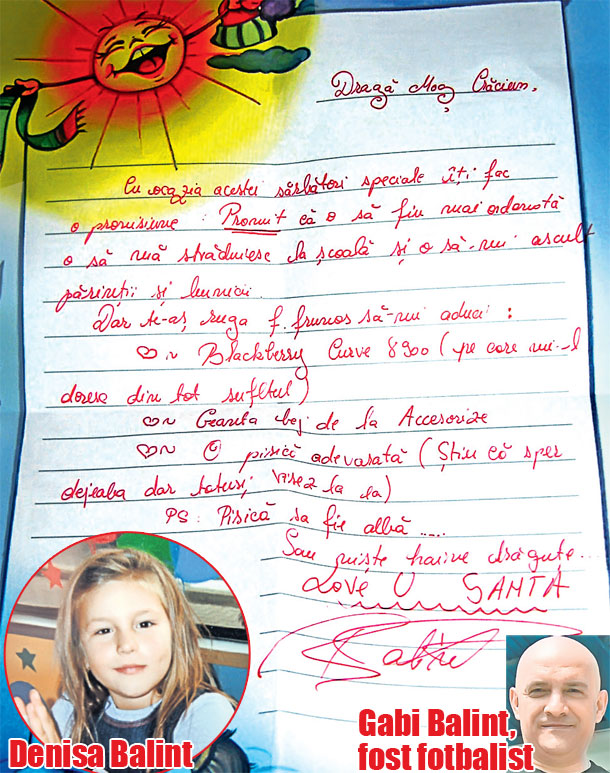 Dragă Moș Crăciun,
Cu ocazia acestei sărbători speciale îți fac
o promisiune : Promit că o să fiu mai ordonată
o să mă străduiesc la școală și o să-mi ascult
părinții și bunicii.
Dar te-aș ruga f. frumos să-mi aduci :
Blackberry Curve 8900 (pe care mi-l
doresc din tot sufltul)
Geanta bej de la Accesorize
O pisică adevarată (Știu că sper
dejeaba dar totuși visez la ea)
PS : Pisică sa fie albă .....
Sau niște haine drăguțe...
LOVE U SANTA
Denisa Balint
Gabi Balint,
fost fotbalist